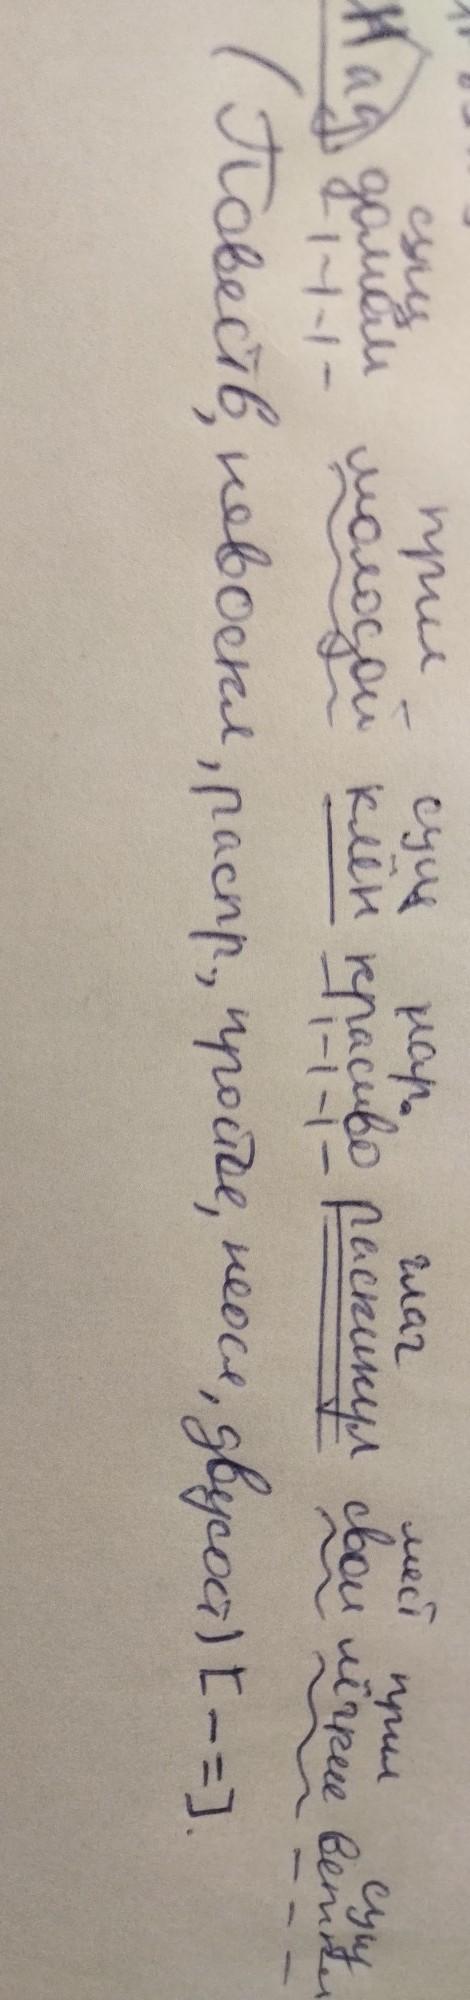 сущ прил сущ нар. глаг мест прил сущ
Над домом молодой клён красиво раскинул свои лёгкие ветки
(Повеств, невоскл, распр., простое, неосл, двусост) [ – = ].